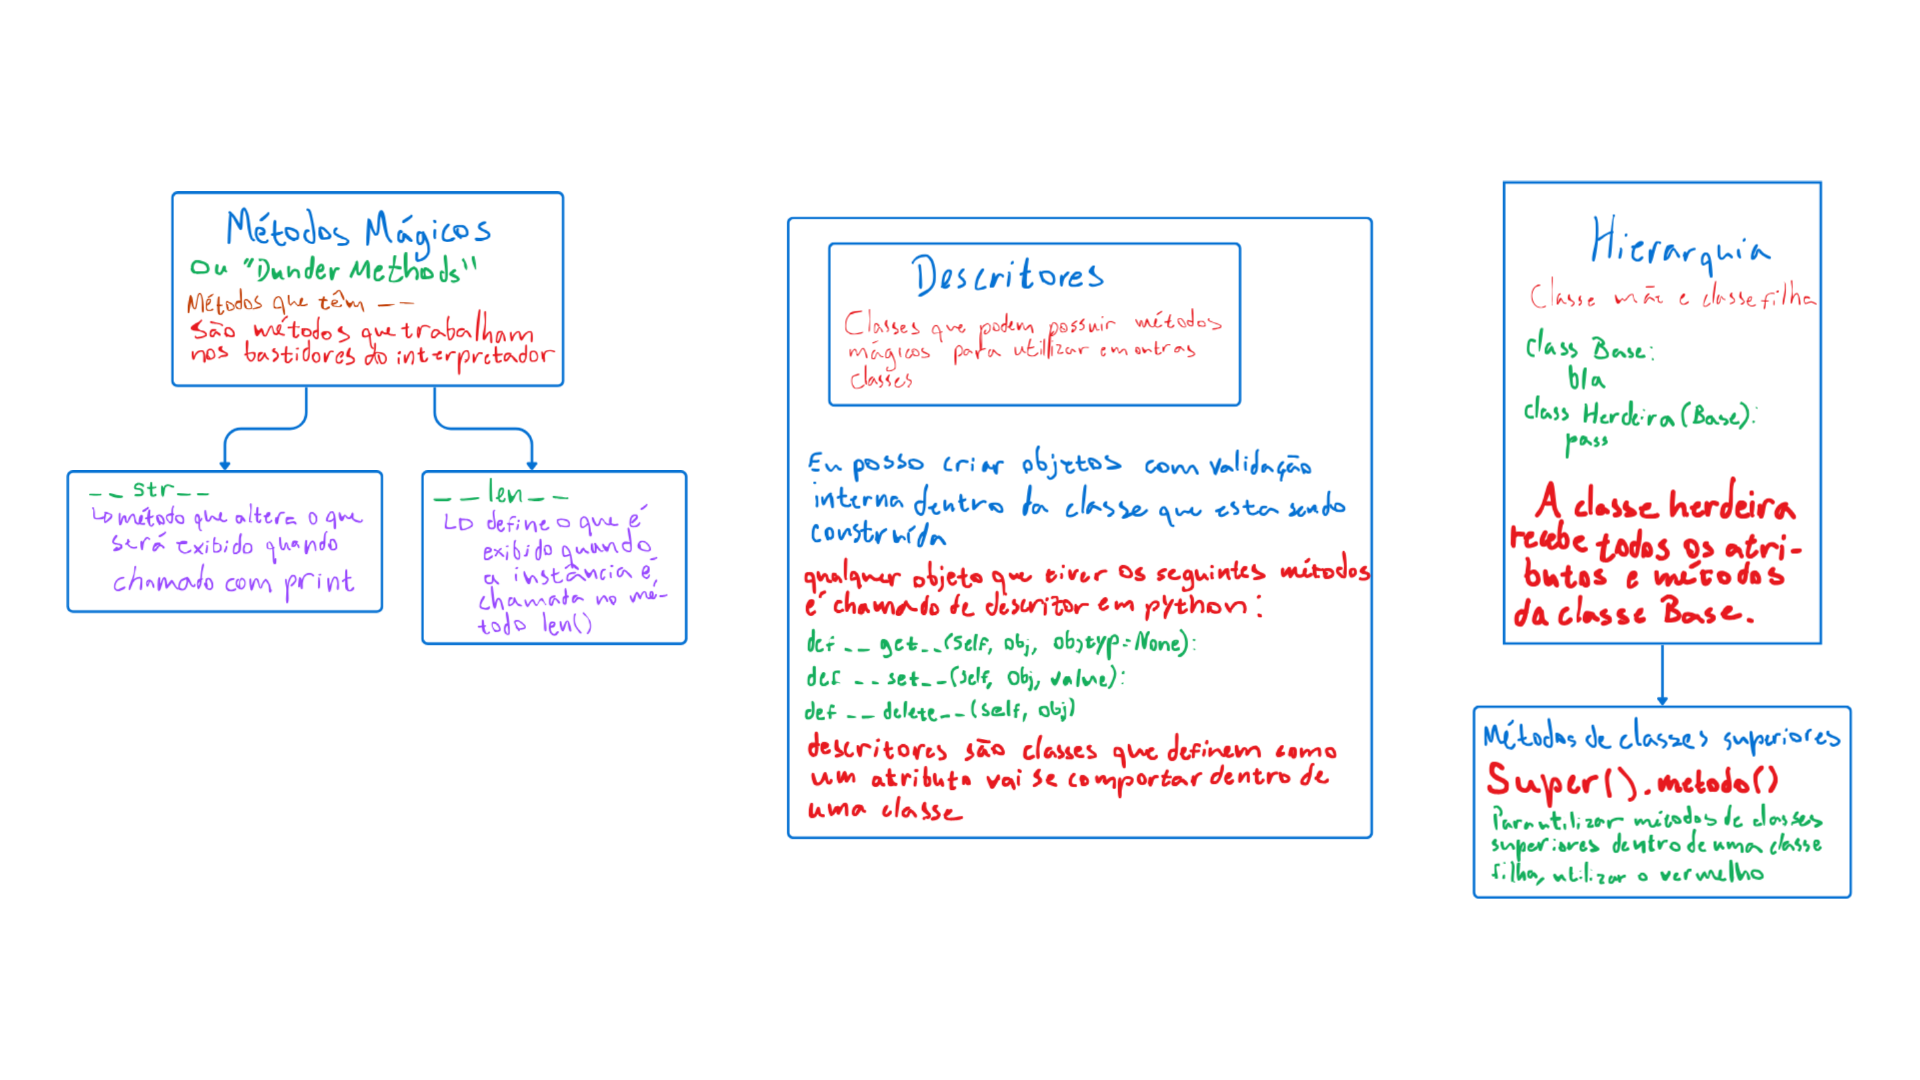 Métodos Mágicos
Ou "Dunder Methods"
Métodos que têm __
São métodos que trabalham
nos bastidores do interpretador
__str__
↳ método que altera o que
será exibido quando
chamado com print
__len__
↳ define o que é
exibido quando
a instância é
chamada no mé-
todo len()
Descritores
Classes que podem possuir métodos
mágicos para utilizar em outras
classes
Eu posso criar objetos com validação
interna dentro da classe que esta sendo
construída
qualquer objeto que tiver os seguintes métodos
é chamado de descritor em python:
def __get__(self, obj, objtyp=None):
def __set__(self, obj, value):
def __delete__(self, obj)
descritores são classes que definem como
um atributo vai se comportar dentro de
uma classe
Hierarquia
Classe mãe e classe filha
class Base:
bla
class Herdeira(Base):
pass
A classe herdeira
recebe todos os atri-
butos e métodos
da classe Base.
Métodos de classes superiores
Super().metodo()
Para utilizar métodos de classes
superiores dentro de uma classe
filha, utilizar o vermelho